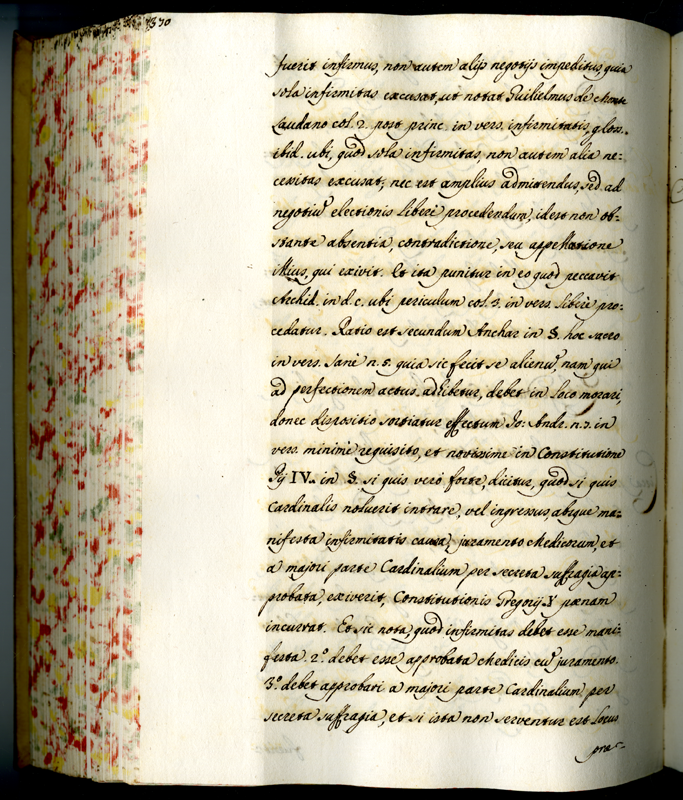 1370
fuerit infirmus, non autem alijs negotijs impeditus, quia
sola infirmitas excusat, ut notat Guilielmus de Monte
Laudano col. 2. post princ. in vers. infirmitatis, gloss.
ibid. ubi, quod sola infirmitas, non autem alia ne=
cessitas excusat; nec est amplius admittendus, sed ad
negotiu electionis liberè procedendum, idest non ob=
stante absentia, contradictione, seu appellatione
illius, qui exivit. Et ita punitur in eo quod peccavit
Archid. in d. c. ubi periculum col. 3. in vers. liberè pro=
cedatur. Ratio est secundum Anchar in §. hoc sacro
in vers. sanè n. 5. quia sic fecit se alienu, nam qui
ad perfectionem actus adhibetur, debet in loco morari,
donec dispositio sortiatur effectum Jo: Andr. n. 7. in
vers. minimè requisito, et novissime in Constitutione
Pij IV. in §. si quis verò forte, dicitur, quod si quis
Cardinalis noluerit intrare, vel ingressus, absque ma=
nifesta infirmitatis causa, juramento Medicorum, et
a majori parte Cardinalium per secreta suffragia ap=
probata, exiverit, Constitutionis Gregorij X pænam
incurrat. Et sic nota, quod infirmitas debet esse mani=
festa. 2.º debet esse approbata Medicis cu juramento.
3.º debet approbari a majori parte Cardinalium per
secreta suffragia, et si ista non serventur est locus
præ=